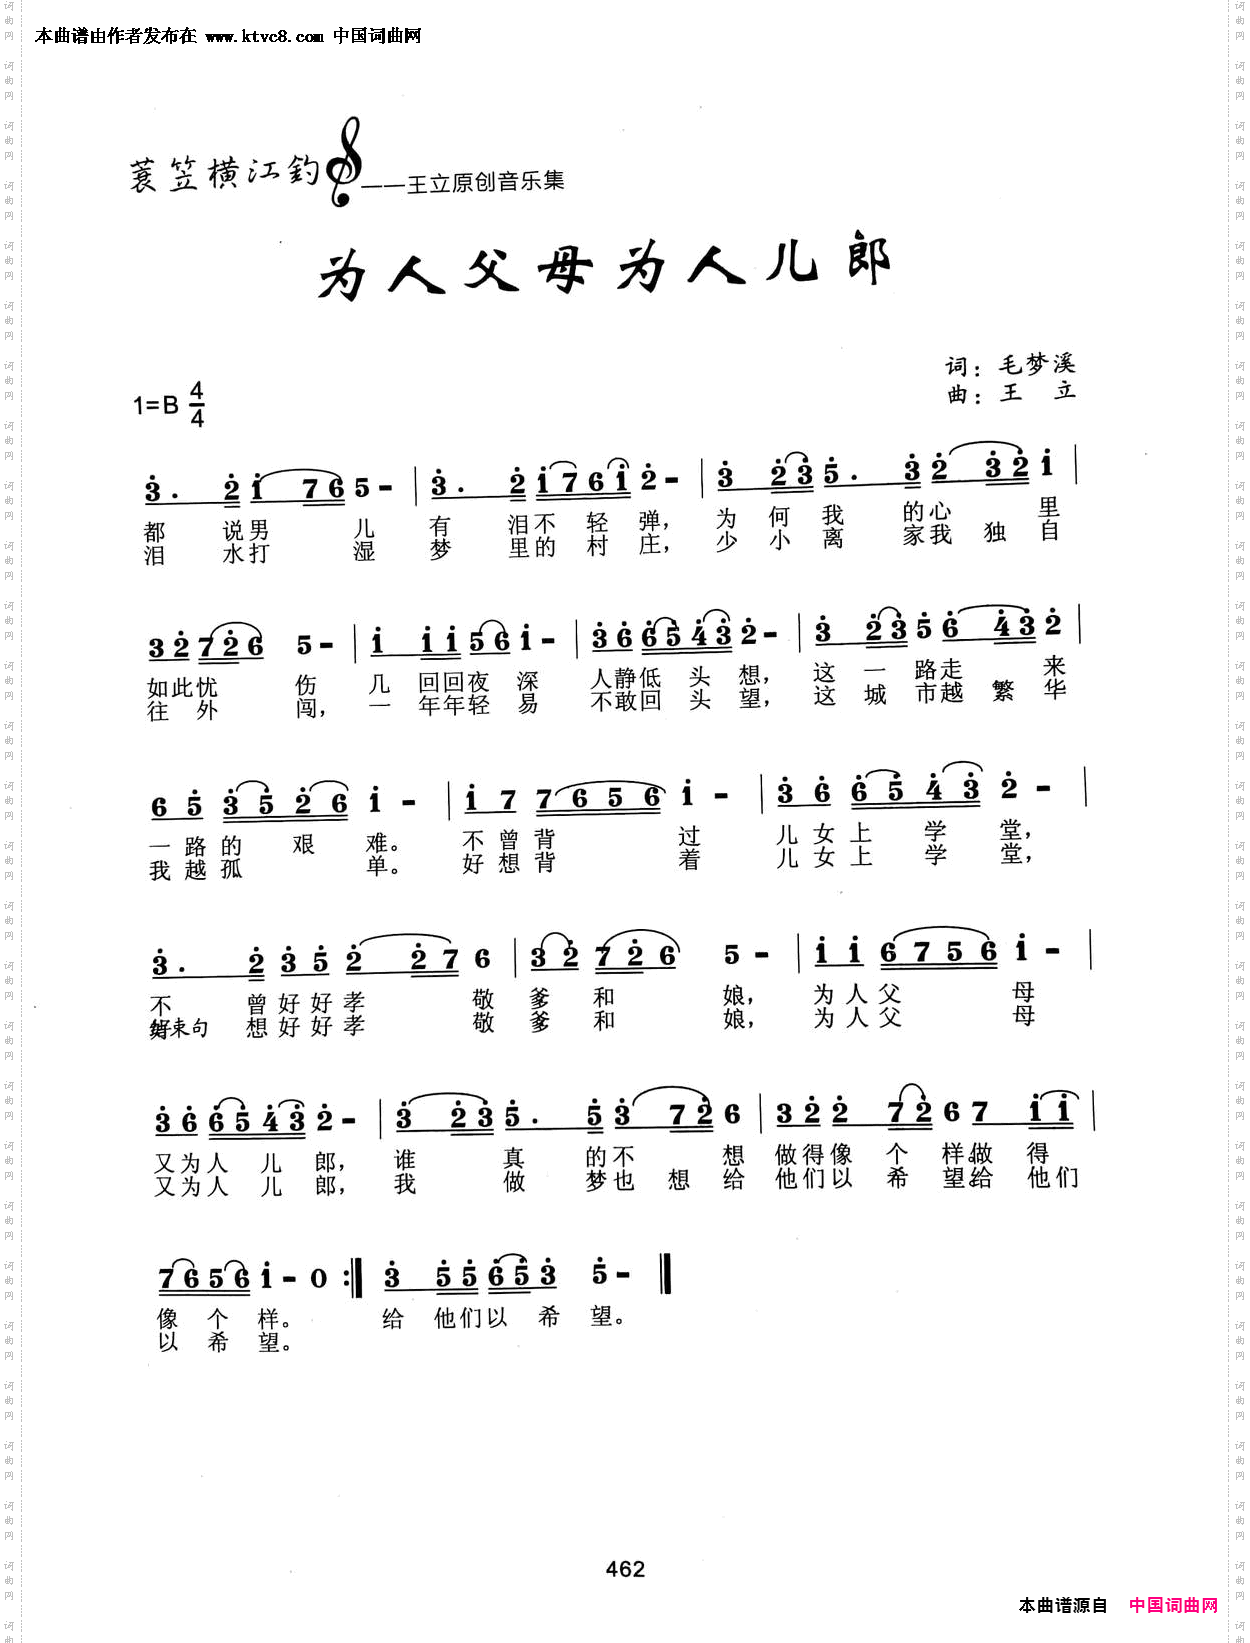 本曲谱由作者发布在 www.ktvc8.com 中国词曲网
蓑笠横江釣 ——王立原创音乐集
为人父母为人儿郎
词：毛梦溪
1=B 4/4
曲：王 立
3. 2 1 7 6 5 - | 3. 2 1 7 6 1 2 - | 3 2 3 5. 3 2 3 2 1 |
都 说男 儿 有 泪不 轻 弹， 为 何 我 的心 里
泪 水打 湿 梦 里的 村 庄， 少 小 离 家我 独 自
3 2 7 2 6 5 - | 1 1 1 5 6 1 - | 3 6 6 5 4 3 2 - | 3 2 3 5 6 4 3 2 |
如此忧 伤 几 回回夜 深 人静低 头 想， 这 一 路走 来
往 外 闯， 一 年年轻 易 不敢回 头 望， 这 城 市越 繁 华
6 5 3 5 2 6 1 - | 1 7 7 6 5 6 1 - | 3 6 6 5 4 3 2 - |
一 路 的 艰 难。 不 曾 背 过 儿 女 上 学 堂，
我 越 孤 单。 好 想 背 着 儿 女 上 学 堂，
3. 2 3 5 2 2 7 6 | 3 2 7 2 6 5 - | 1 1 6 7 5 6 1 - |
不 曾 好 好 孝 敬 爹 和 娘， 为 人 父 母
结束句 想 好 好 孝 敬 爹 和 娘， 为 人 父 母
3 6 6 5 4 3 2 - | 3 2 3 5. 5 3 7 2 6 | 3 2 2 7 2 6 7 1 1 |
又为人 儿 郎， 谁 真 的 不 想 做得像 个 样做 得
又为人 儿 郎， 我 做 梦也 想 给 他们以 希 望给 他们
7 6 5 6 1 - 0 :| 3 5 5 6 5 3 5 - ||
像 个 样。 给 他们以 希 望。
以 希 望。
462
本曲谱源自 中国词曲网